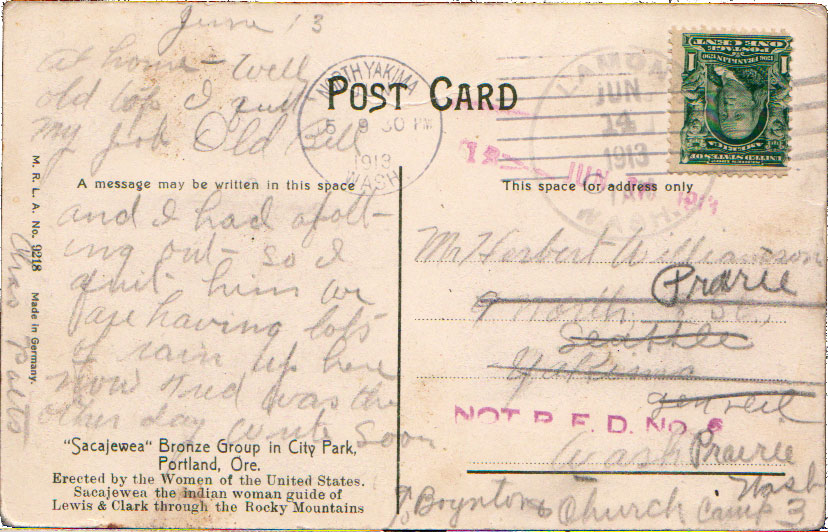 June 13
at home - Well
old top I quit
my job Old Bill
and I had a fall-
ing out - so I
quit him we
are having lots
of rain up here
now
was the
other day write soon
POST CARD
A message may be written in this space
This space for address only
M. R. L. A. No. 9218 Made in Germany.
NORTH YAKIMA
9 30 PM
1913
WASH.
JUN
14
1913
WASH.
POSTAGE
ONE CENT
1 1
Mr Herbert Williamson
Prarie
9 North St.,
Seattle
Yakima
NOT R. F. D. No. 6
Wash Prairie
Wash
% Boynton Church Camp 3
"Sacajewea" Bronze Group in City Park,
Portland, Ore.
Erected by the Women of the United States.
Sacajewea the indian woman guide of
Lewis & Clark through the Rocky Mountains